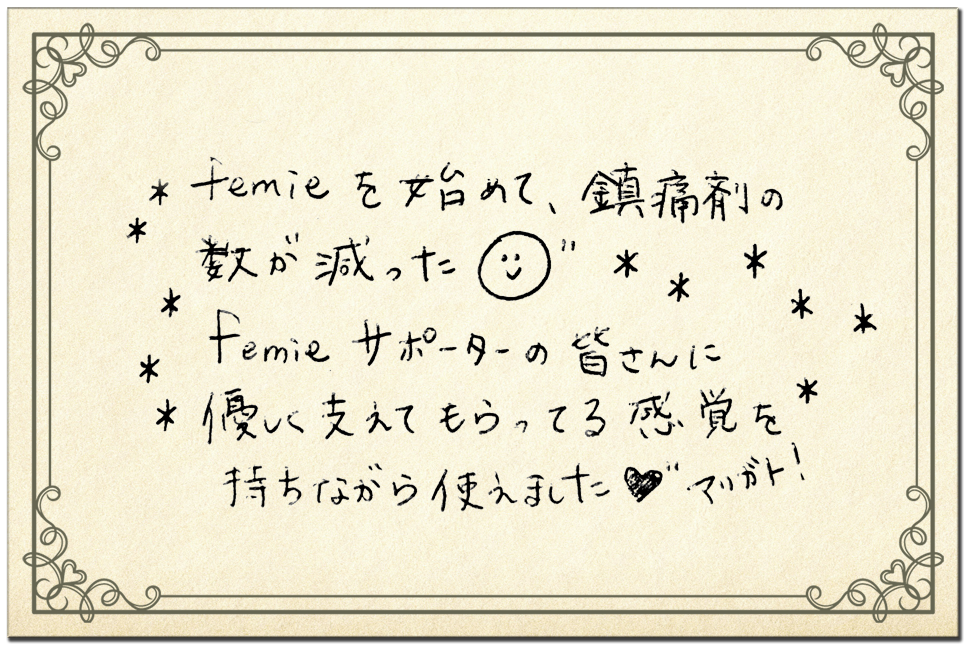 femieを始めて、鎮痛剤の
数が減った☺〃
femieサポーターの皆さんに
優しく支えてもらってる感覚を
持ちながら使えました♥〃マリガト!